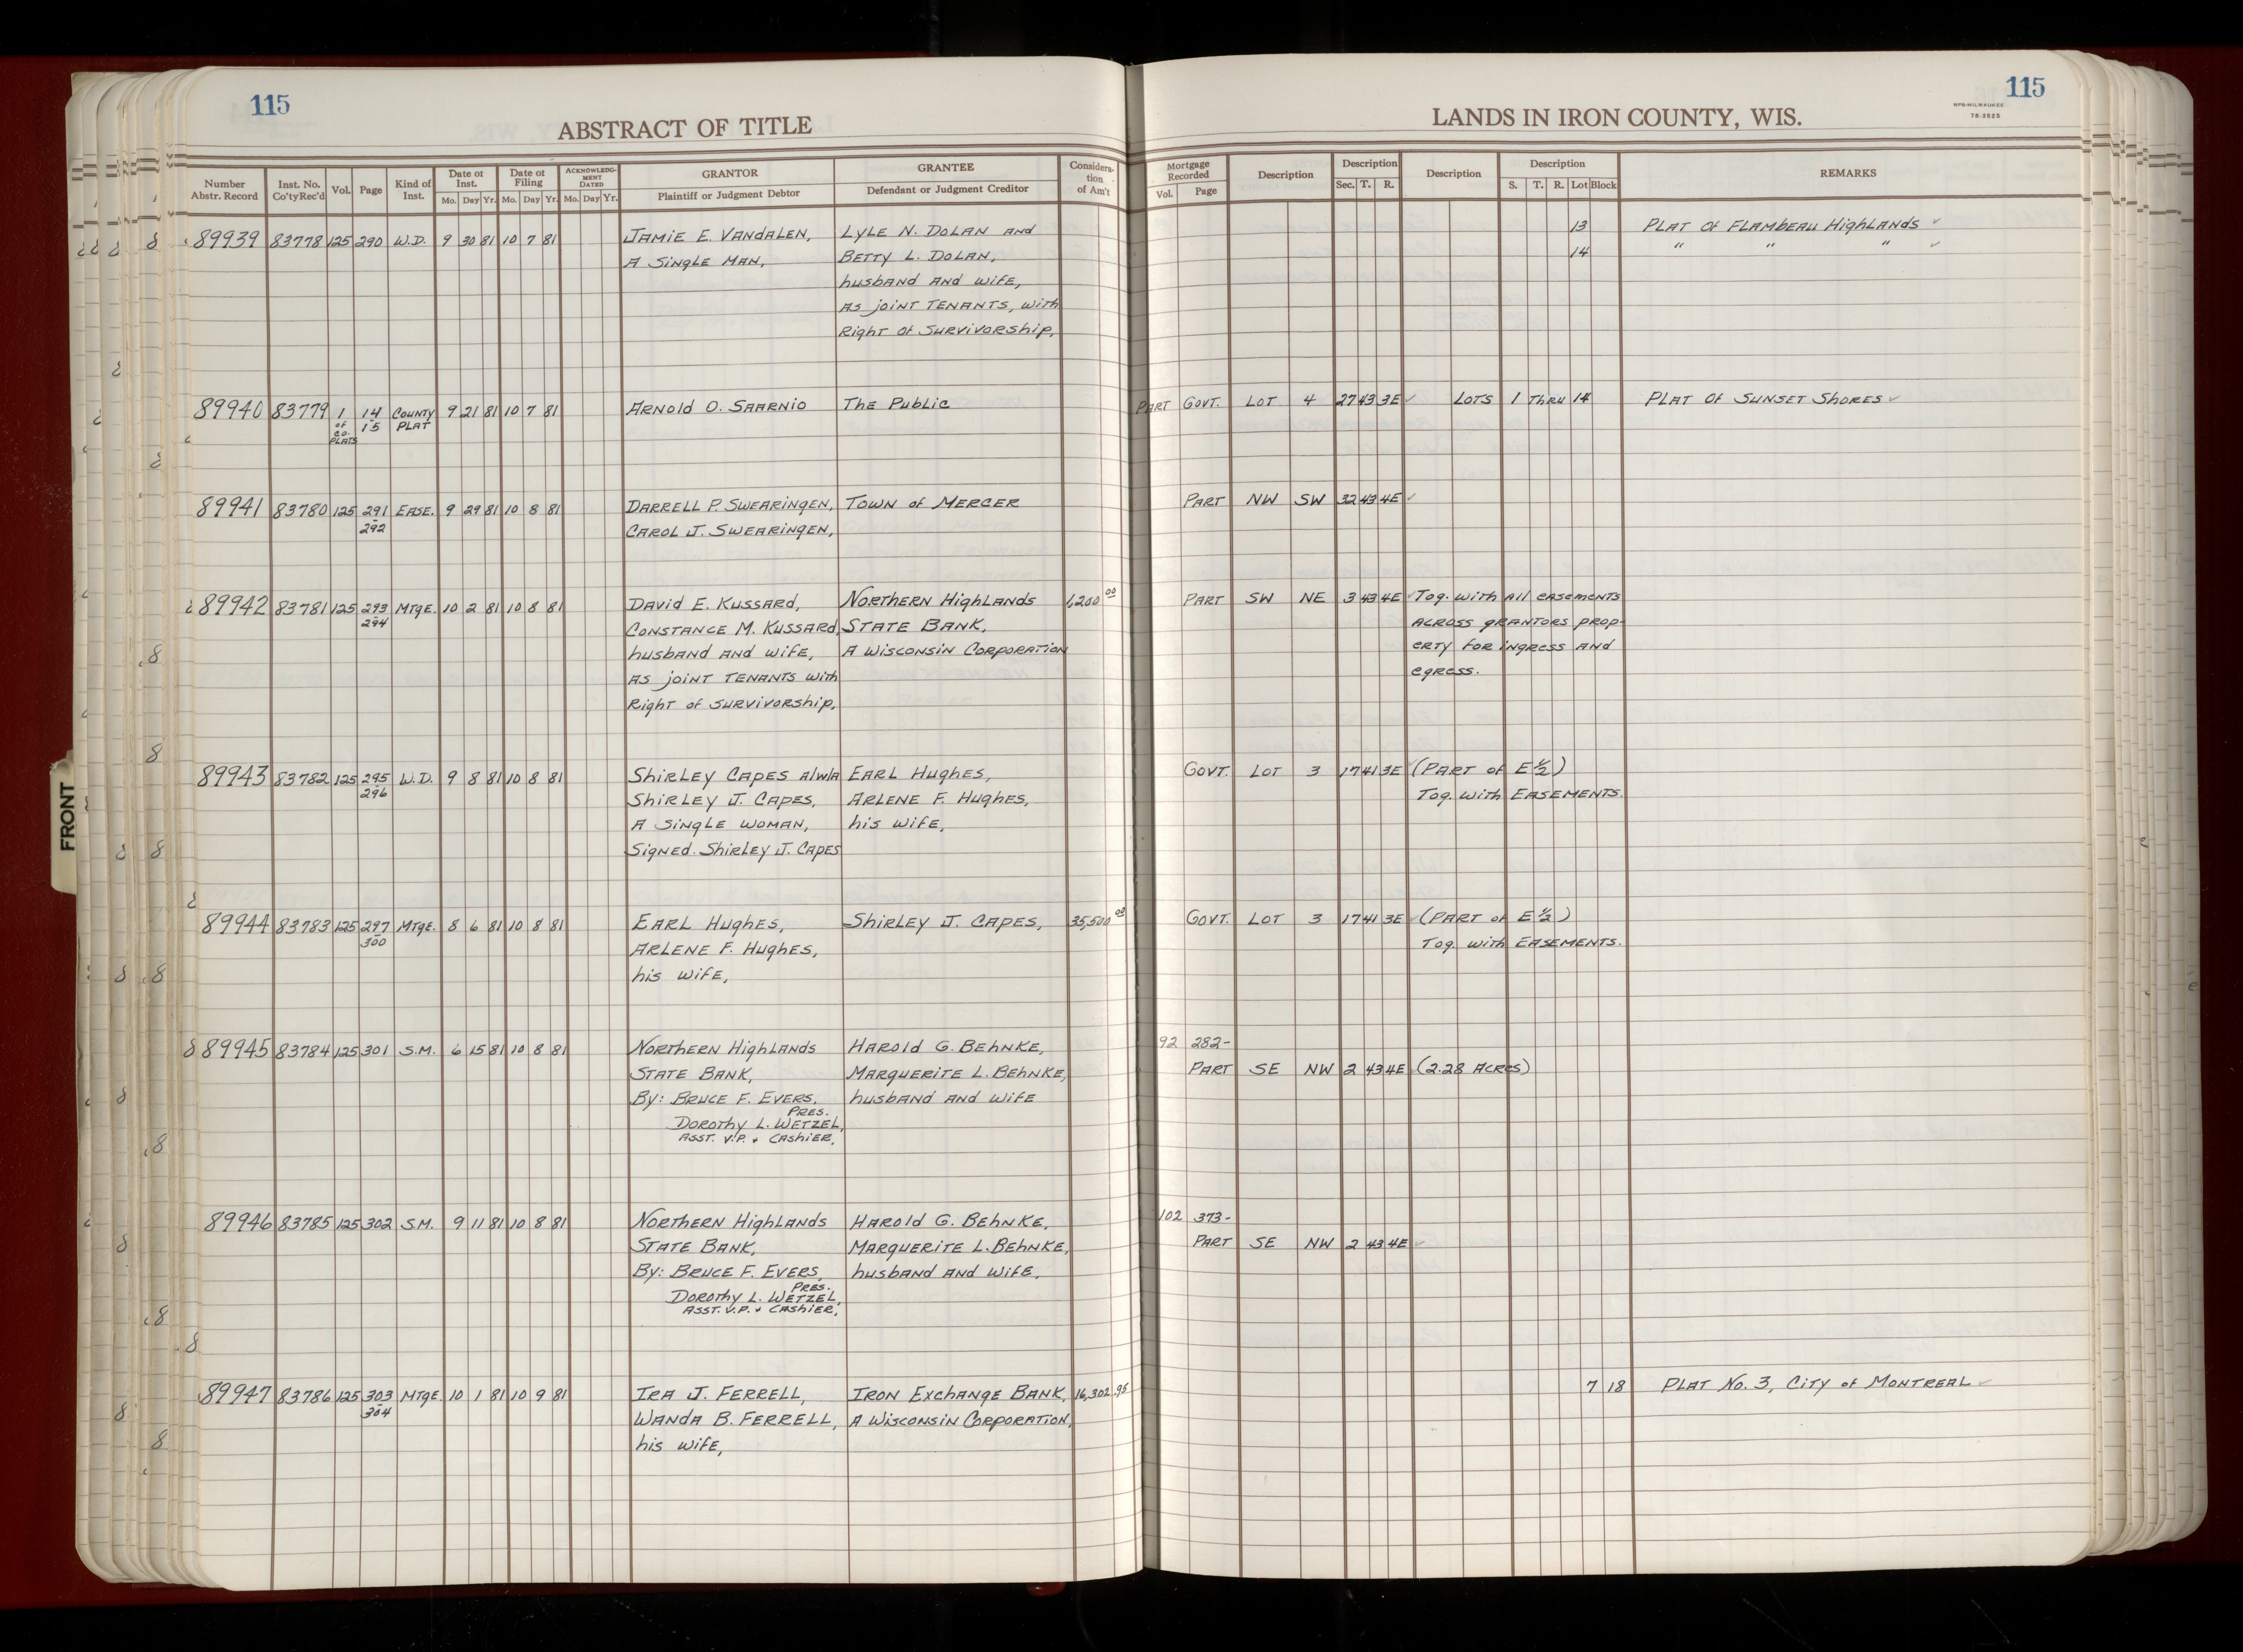 115
ABSTRACT OF TITLE
Number Abstr. Record | Inst. No. Co'ty Rec'd | Vol. | Page | Kind of Inst. | Date of Inst. Mo. Day Yr. | Date of Filing Mo. Day Yr. | ACKNOWLEDGMENT DATED Mo. Day Yr. | GRANTOR Plaintiff or Judgment Debtor | GRANTEE Defendant or Judgment Creditor | Consideration of Am't
89939 83778 125 290 W.D. 9 30 81 10 7 81 Jamie E. Vandalen, Lyle N. Dolan and
A Single Man, Betty L. Dolan,
husband and wife,
as joint tenants, with
Right of Survivorship,
89940 83779 1 14 County 9 21 81 10 7 81 Arnold O. Saarnio The Public
of Co. Plats 15 Plat
89941 83780 125 291 Ease. 9 29 81 10 8 81 Darrell P. Swearingen, Town of Mercer
292 Carol J. Swearingen,
89942 83781 125 293 Mtge. 10 2 81 10 8 81 David E. Kussard, Northern Highlands 1,200 00
294 Constance M. Kussard, State Bank,
husband and wife, A Wisconsin Corporation
as joint tenants with
Right of survivorship,
89943 83782 125 295 W.D. 9 8 81 10 8 81 Shirley Capes a/w/a Earl Hughes,
296 Shirley J. Capes, Arlene F. Hughes,
A single woman, his wife,
Signed. Shirley J. Capes
89944 83783 125 297 Mtge. 8 6 81 10 8 81 Earl Hughes, Shirley J. Capes, 35,500 00
300 Arlene F. Hughes,
his wife,
89945 83784 125 301 S.M. 6 15 81 10 8 81 Northern Highlands Harold G. Behnke,
State Bank, Marguerite L. Behnke,
By: Bruce F. Evers, husband and wife
Pres.
Dorothy L. Wetzel,
Asst. V.P. + Cashier,
89946 83785 125 302 S.M. 9 11 81 10 8 81 Northern Highlands Harold G. Behnke,
State Bank, Marguerite L. Behnke,
By: Bruce F. Evers, husband and wife,
Pres.
Dorothy L. Wetzel,
Asst. V.P. + Cashier,
89947 83786 125 303 Mtge. 10 1 81 10 9 81 Ira J. Ferrell, Iron Exchange Bank, 16,302.95
304 Wanda B. Ferrell, A Wisconsin Corporation,
his wife,
FRONT
115
WPB-MILWAUKEE
78-3525
LANDS IN IRON COUNTY, WIS.
Mortgage Recorded Vol. Page | Description | Description Sec. T. R. | Description | Description S. T. R. Lot Block | REMARKS
13 Plat of Flambeau Highlands
14 " " "
Part Govt. Lot 4 27 43 3E Lots 1 thru 14 Plat of Sunset Shores
Part NW SW 32 43 4E
Part SW NE 3 43 4E Tog. with all easements
across grantors prop-
erty for ingress and
egress.
Govt. Lot 3 17 41 3E (Part of E½)
Tog. with Easements.
Govt. Lot 3 17 41 3E (Part of E½)
Tog. with Easements.
92 282-
Part SE NW 2 43 4E (2.28 Acres)
102 373-
Part SE NW 2 43 4E
7 18 Plat No. 3, City of Montreal